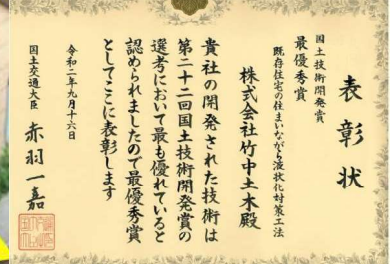 表彰状
国土技術開発賞
最優秀賞
既存住宅の住まいながら液状化対策工法
株式会社竹中土木殿
貴社の開発された技術は
第二十二回国土技術開発賞の
選考において最も優れていると
認められましたので最優秀賞
としてここに表彰します
令和二年九月十六日
国土交通大臣 赤羽一嘉